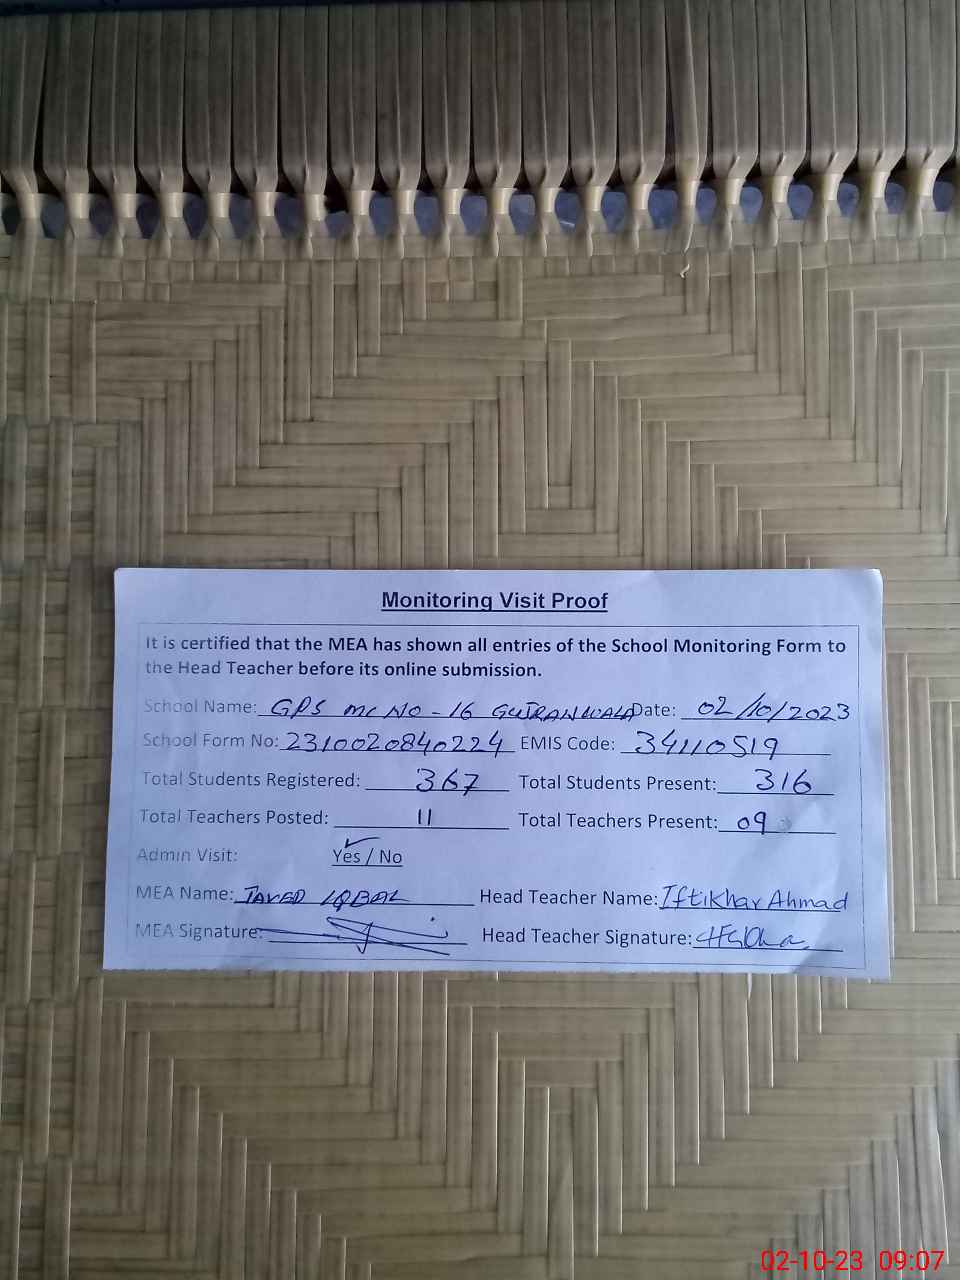 Monitoring Visit Proof
It is certified that the MEA has shown all entries of the School Monitoring Form to
the Head Teacher before its online submission.
School Name: GPS MC NO - 16 GUJRANWALA Date: 02/10/2023
School Form No: 2310020840224 EMIS Code: 34110519
Total Students Registered: 367 Total Students Present: 316
Total Teachers Posted: 11 Total Teachers Present: 09
Admin Visit: Yes / No
MEA Name: JAVED IQBAL Head Teacher Name: Iftikhar Ahmad
MEA Signature: Head Teacher Signature:
02-10-23 09:07